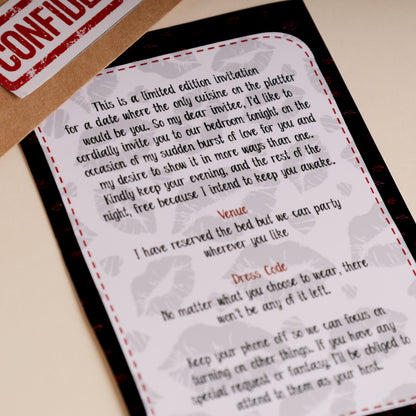 CONFIDE
This is a limited edition invitation
for a date where the only cuisine on the platter
would be you. So my dear invitee, I'd like to
cordially invite you to our bedroom tonight on the
occasion of my sudden burst of love for you and
my desire to show it in more ways than one.
Kindly keep your evening, and the rest of the
night, free because I intend to keep you awake.
Venue
I have reserved the bed but we can party
wherever you like
Dress Code
No matter what you choose to wear, there
won't be any of it left.
Keep your phone off so we can focus on
turning on other things. If you have any
special request or fantasy, I'll be obliged to
attend to them as your host.